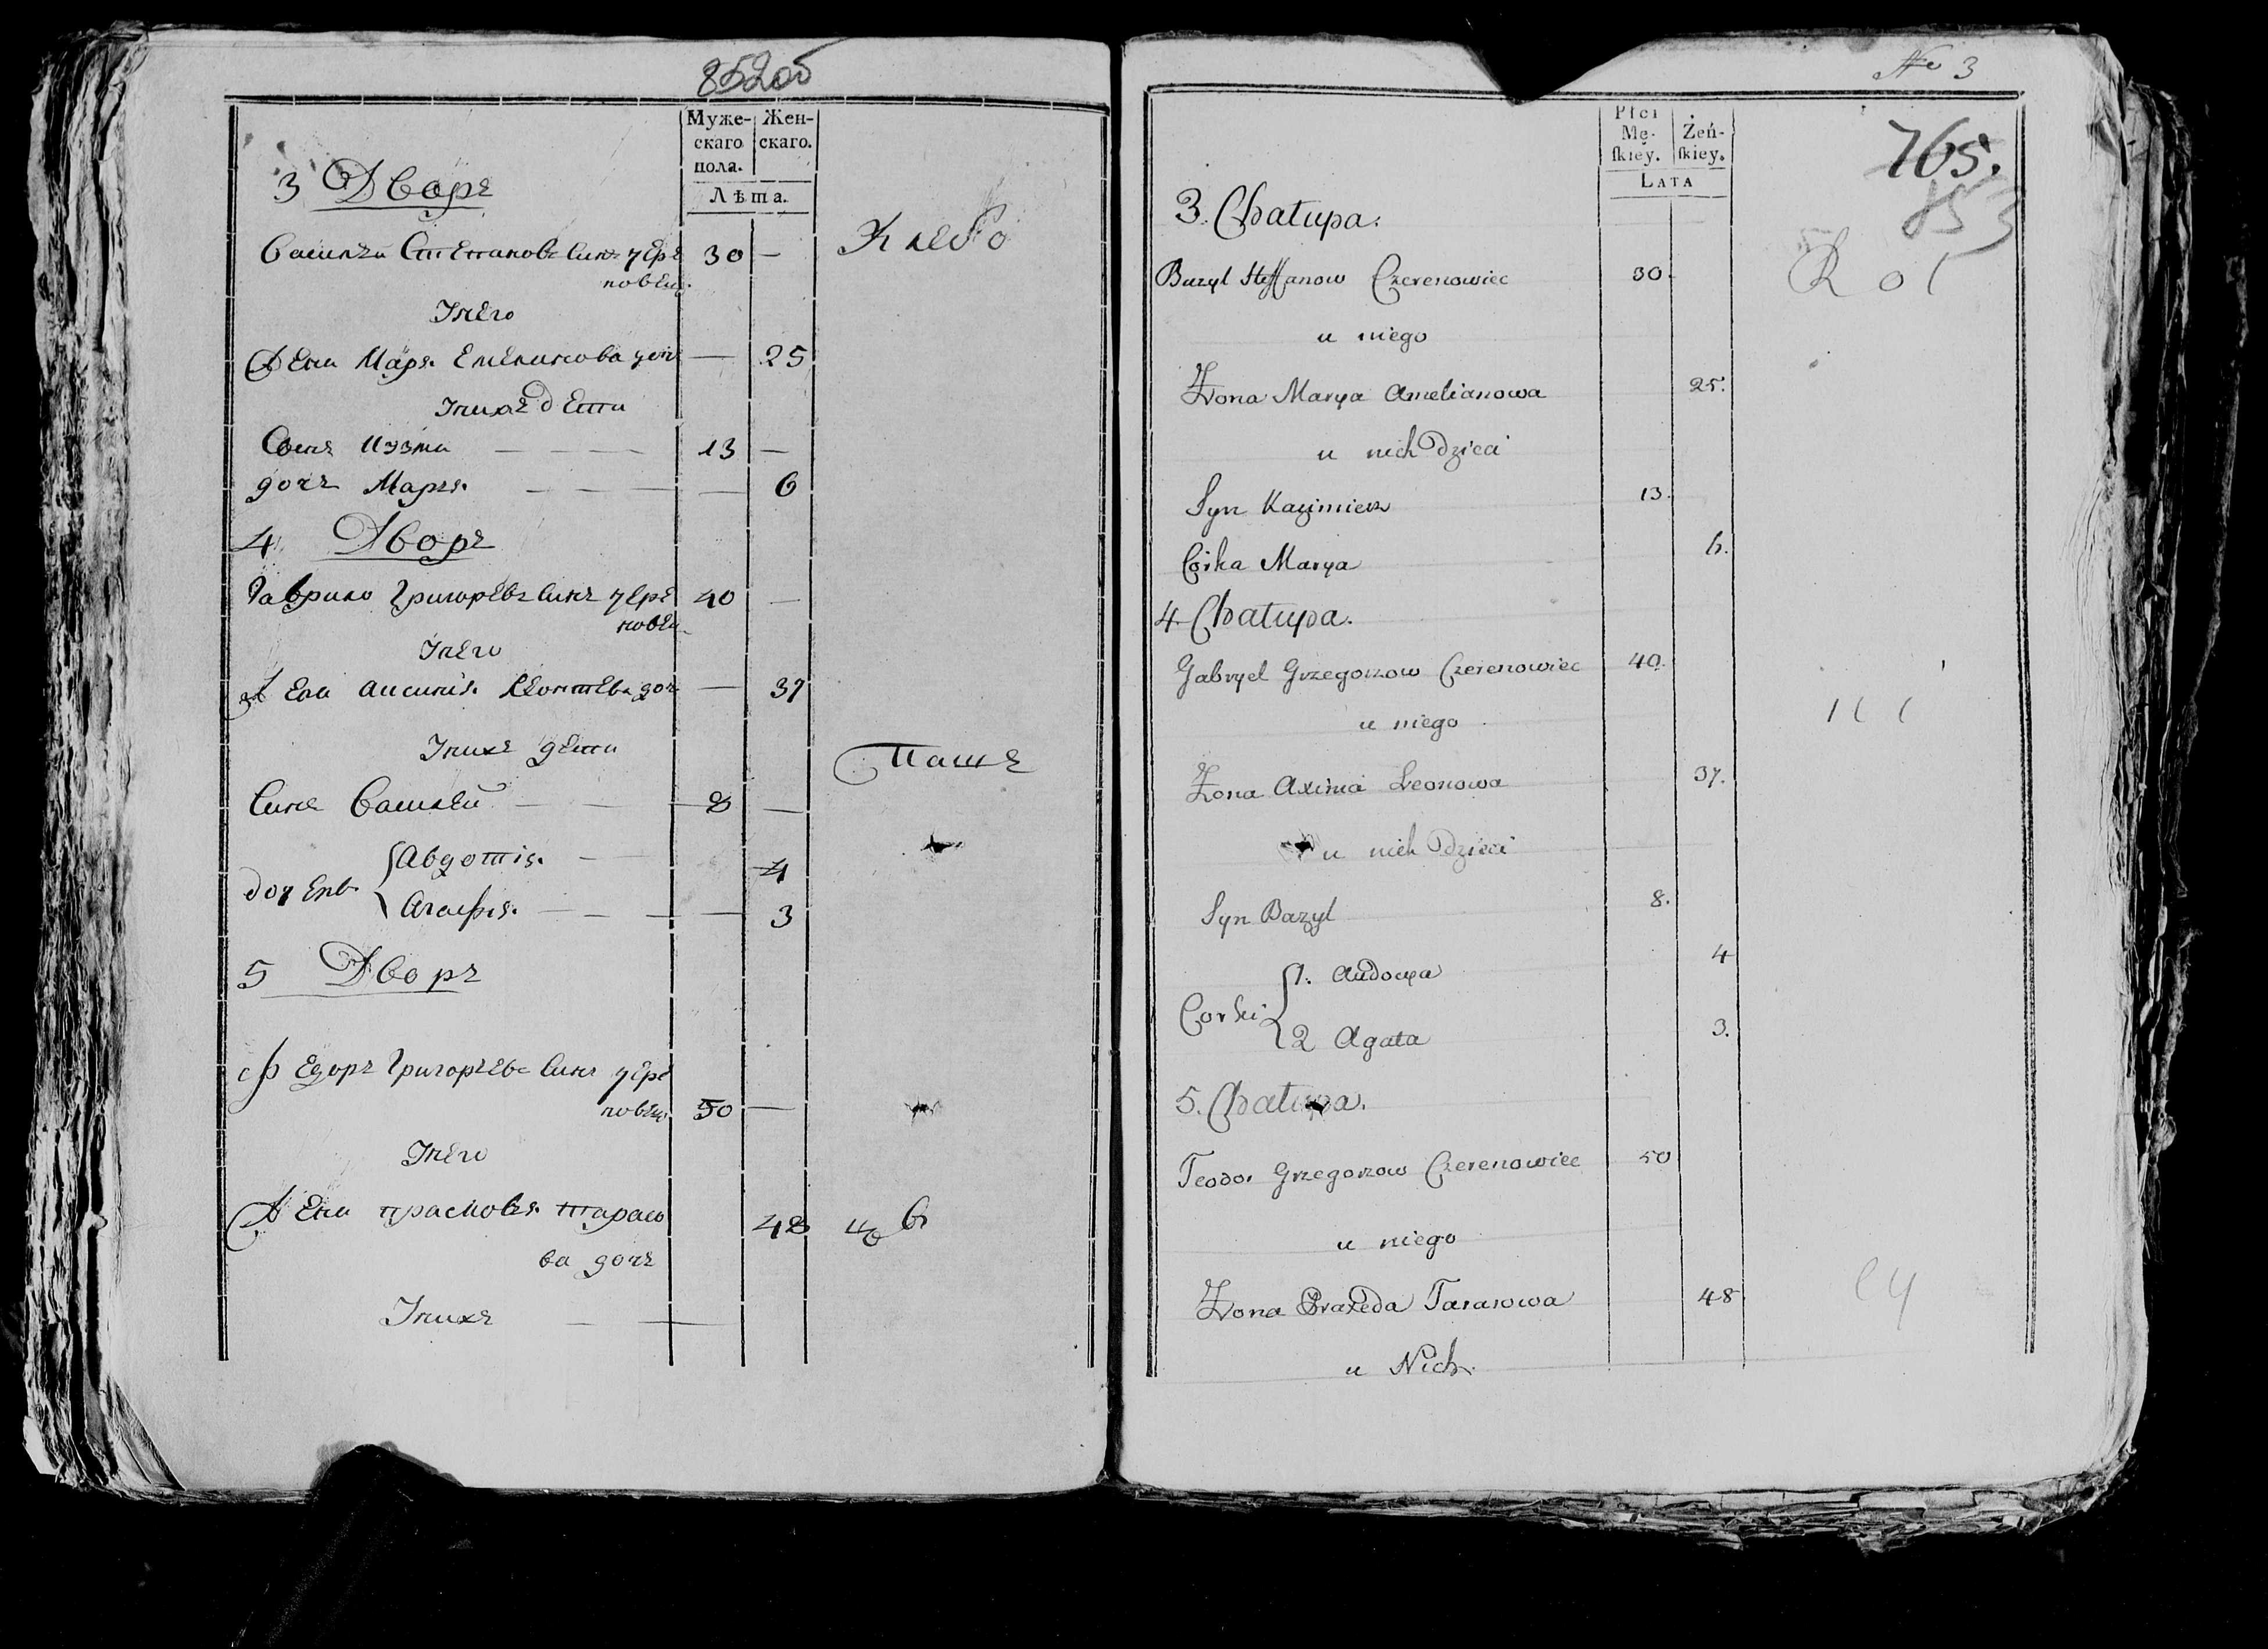 852об
Муже-
скаго
пола.
Жен-
скаго.
Лѣта.
3 Дворъ
Василей Степановъ синъ чере 30 —
новец. Хлебо
Унего
Жена Маря Емелянова доч — 25
Унихъ дети
Синъ Изми — — — 13 —
дочъ Маря — — — — 6
4 Дворъ
Гаврило Григоревъ синъ чере 40 —
новец
Унего
Жена Аксиния Леонтева доч — 37
Унихъ дети
Пашъ
Синъ Василей — — 8 —
дочерь
Авдотия — 4
Агафия — — — — 3
5 Дворъ
Федоръ Григорьевъ синъ чере
новец. 50 —
Унего
Жена прасковя тарасо 48 цов
ва дочъ
Унихъ — —
№ 3
Płci
Mę-
ſkiéy.
Żeń-
ſkiey.
LATA
765.
853
3. Chałupa.
Bazyl Steffanow Czerenowiec 30.
Rol
u niego
Żona Marya Amelianowa 25.
u nich Dzieci
Syn Kazimierz 13.
Córka Marya 6.
4. Chałupa.
Gabryel Grzegorzow Czerenowiec 40.
u niego
Żona Axinia Leonowa 37.
u nich Dzieci
Syn Bazyl 8.
Corki
1. Audocya 4
2 Agata 3.
5. Chałupa.
Teodor Grzegorzow Czerenowiec 50
u niego
Żona Praxeda Tarasowa 48
u Nich